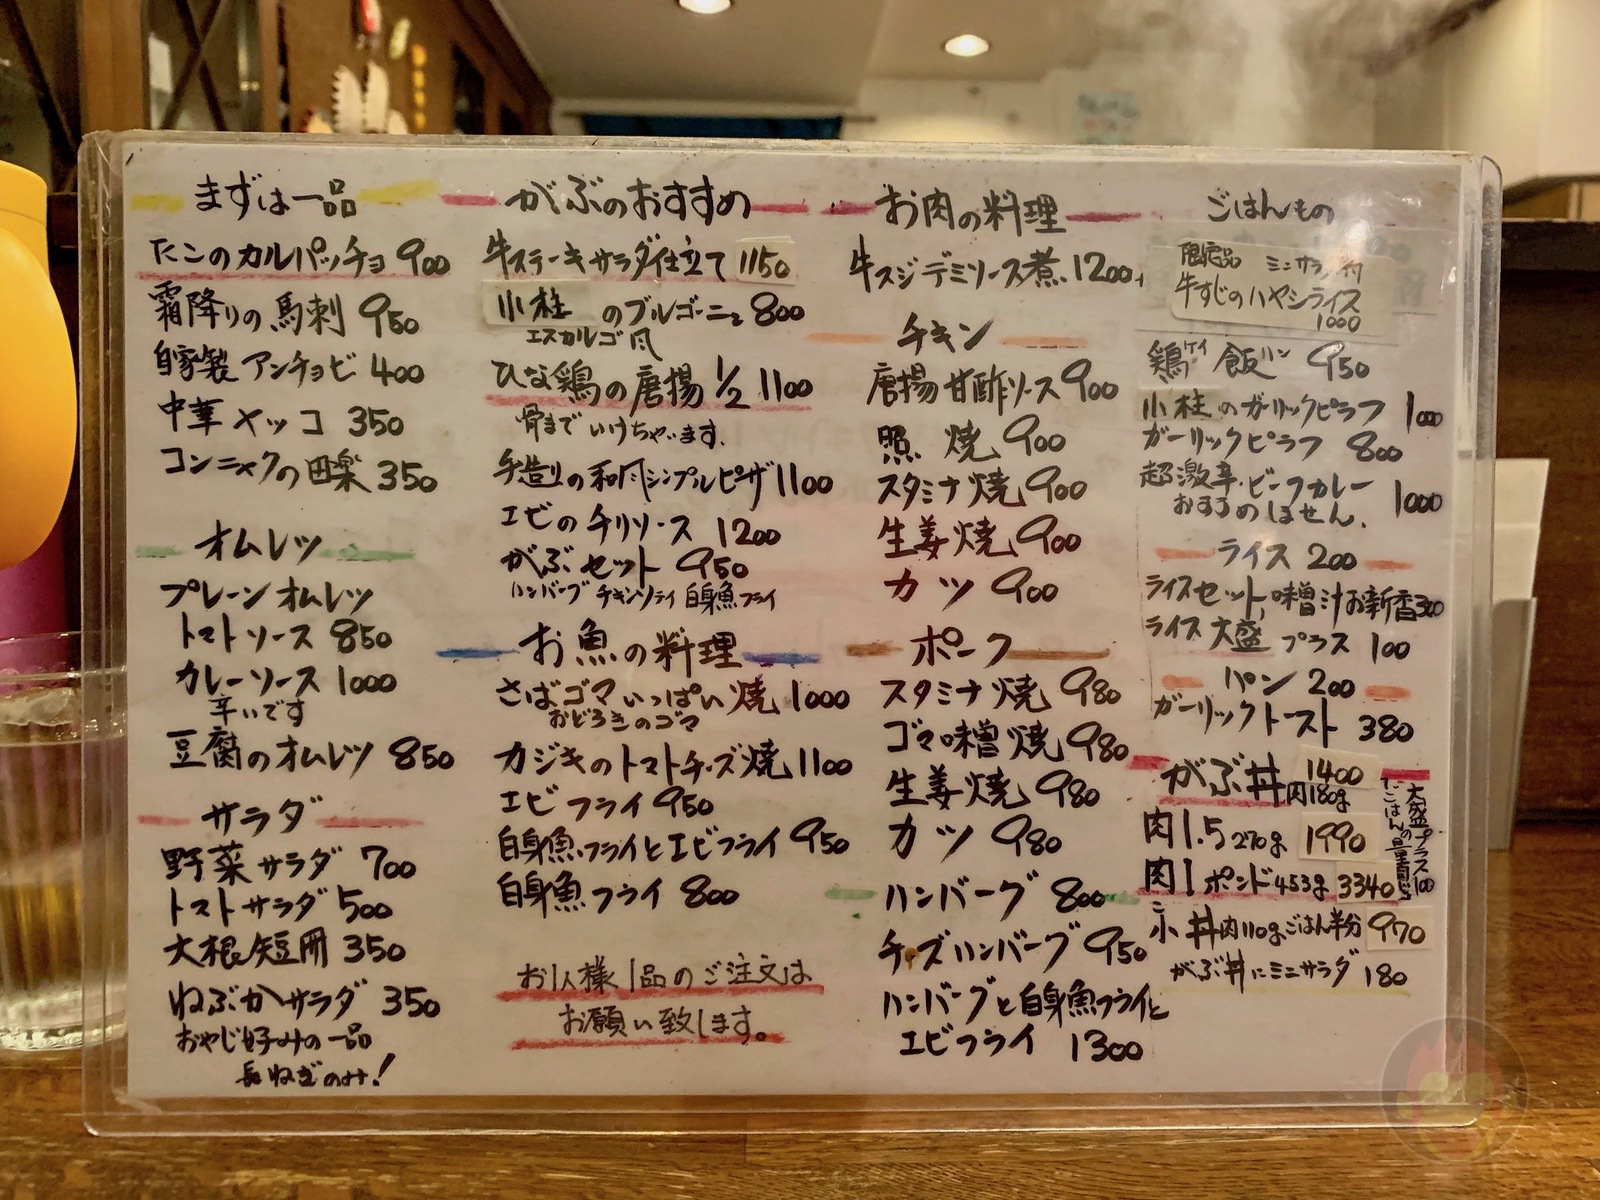 まずは一品
たこのカルパッチョ 900
霜降りの馬刺 950
自家製アンチョビ 400
中華ヤッコ 350
コンニャクの田楽 350
オムレツ
プレーンオムレツ
トマトソース 850
カレーソース 1000
辛いです
豆腐のオムレツ 850
サラダ
野菜サラダ 700
トマトサラダ 500
大根短冊 350
ねぶかサラダ 350
おやじ好みの一品
長ねぎのみ!
がぶのおすすめ
牛ステーキサラダ仕立て 1150
小柱のブルゴーニュ 800
エスカルゴ風
ひな鶏の唐揚 1/2 1100
骨までいけちゃいます。
手造りの和風シンプルピザ 1100
エビのチリソース 1200
がぶセット 950
ハンバーグ チキンソティ 白身魚フライ
お魚の料理
さばゴマいっぱい焼 1000
おどろきのゴマ
カジキのトマトチーズ焼 1100
エビフライ 950
白身魚フライとエビフライ 950
白身魚フライ 800
お1人様1品のご注文は
お願い致します。
お肉の料理
牛スジデミソース煮 1200
チキン
唐揚甘酢ソース 900
照焼 900
スタミナ焼 900
生姜焼 900
カツ 900
ポーク
スタミナ焼 980
ゴマ味噌焼 980
生姜焼 980
カツ 980
ハンバーグ 800
チーズハンバーグ 950
ハンバーグと白身魚フライと
エビフライ 1300
ごはんもの
限定品 ミニサラダ付
牛すじのハヤシライス
1000
鶏ケイ飯ハン 950
小柱のガーリックピラフ 1000
ガーリックピラフ 800
超激辛・ビーフカレー 1000
おすすめしません。
ライス 200
ライスセット、味噌汁お新香 300
ライス大盛プラス 100
パン 200
ガーリックトースト 380
がぶ丼 1400
肉180g
肉1.5 270g 1990
肉1ポンド453g 3340
大盛プラス100
小丼肉110gごはん半分 970
がぶ丼にミニサラダ 180